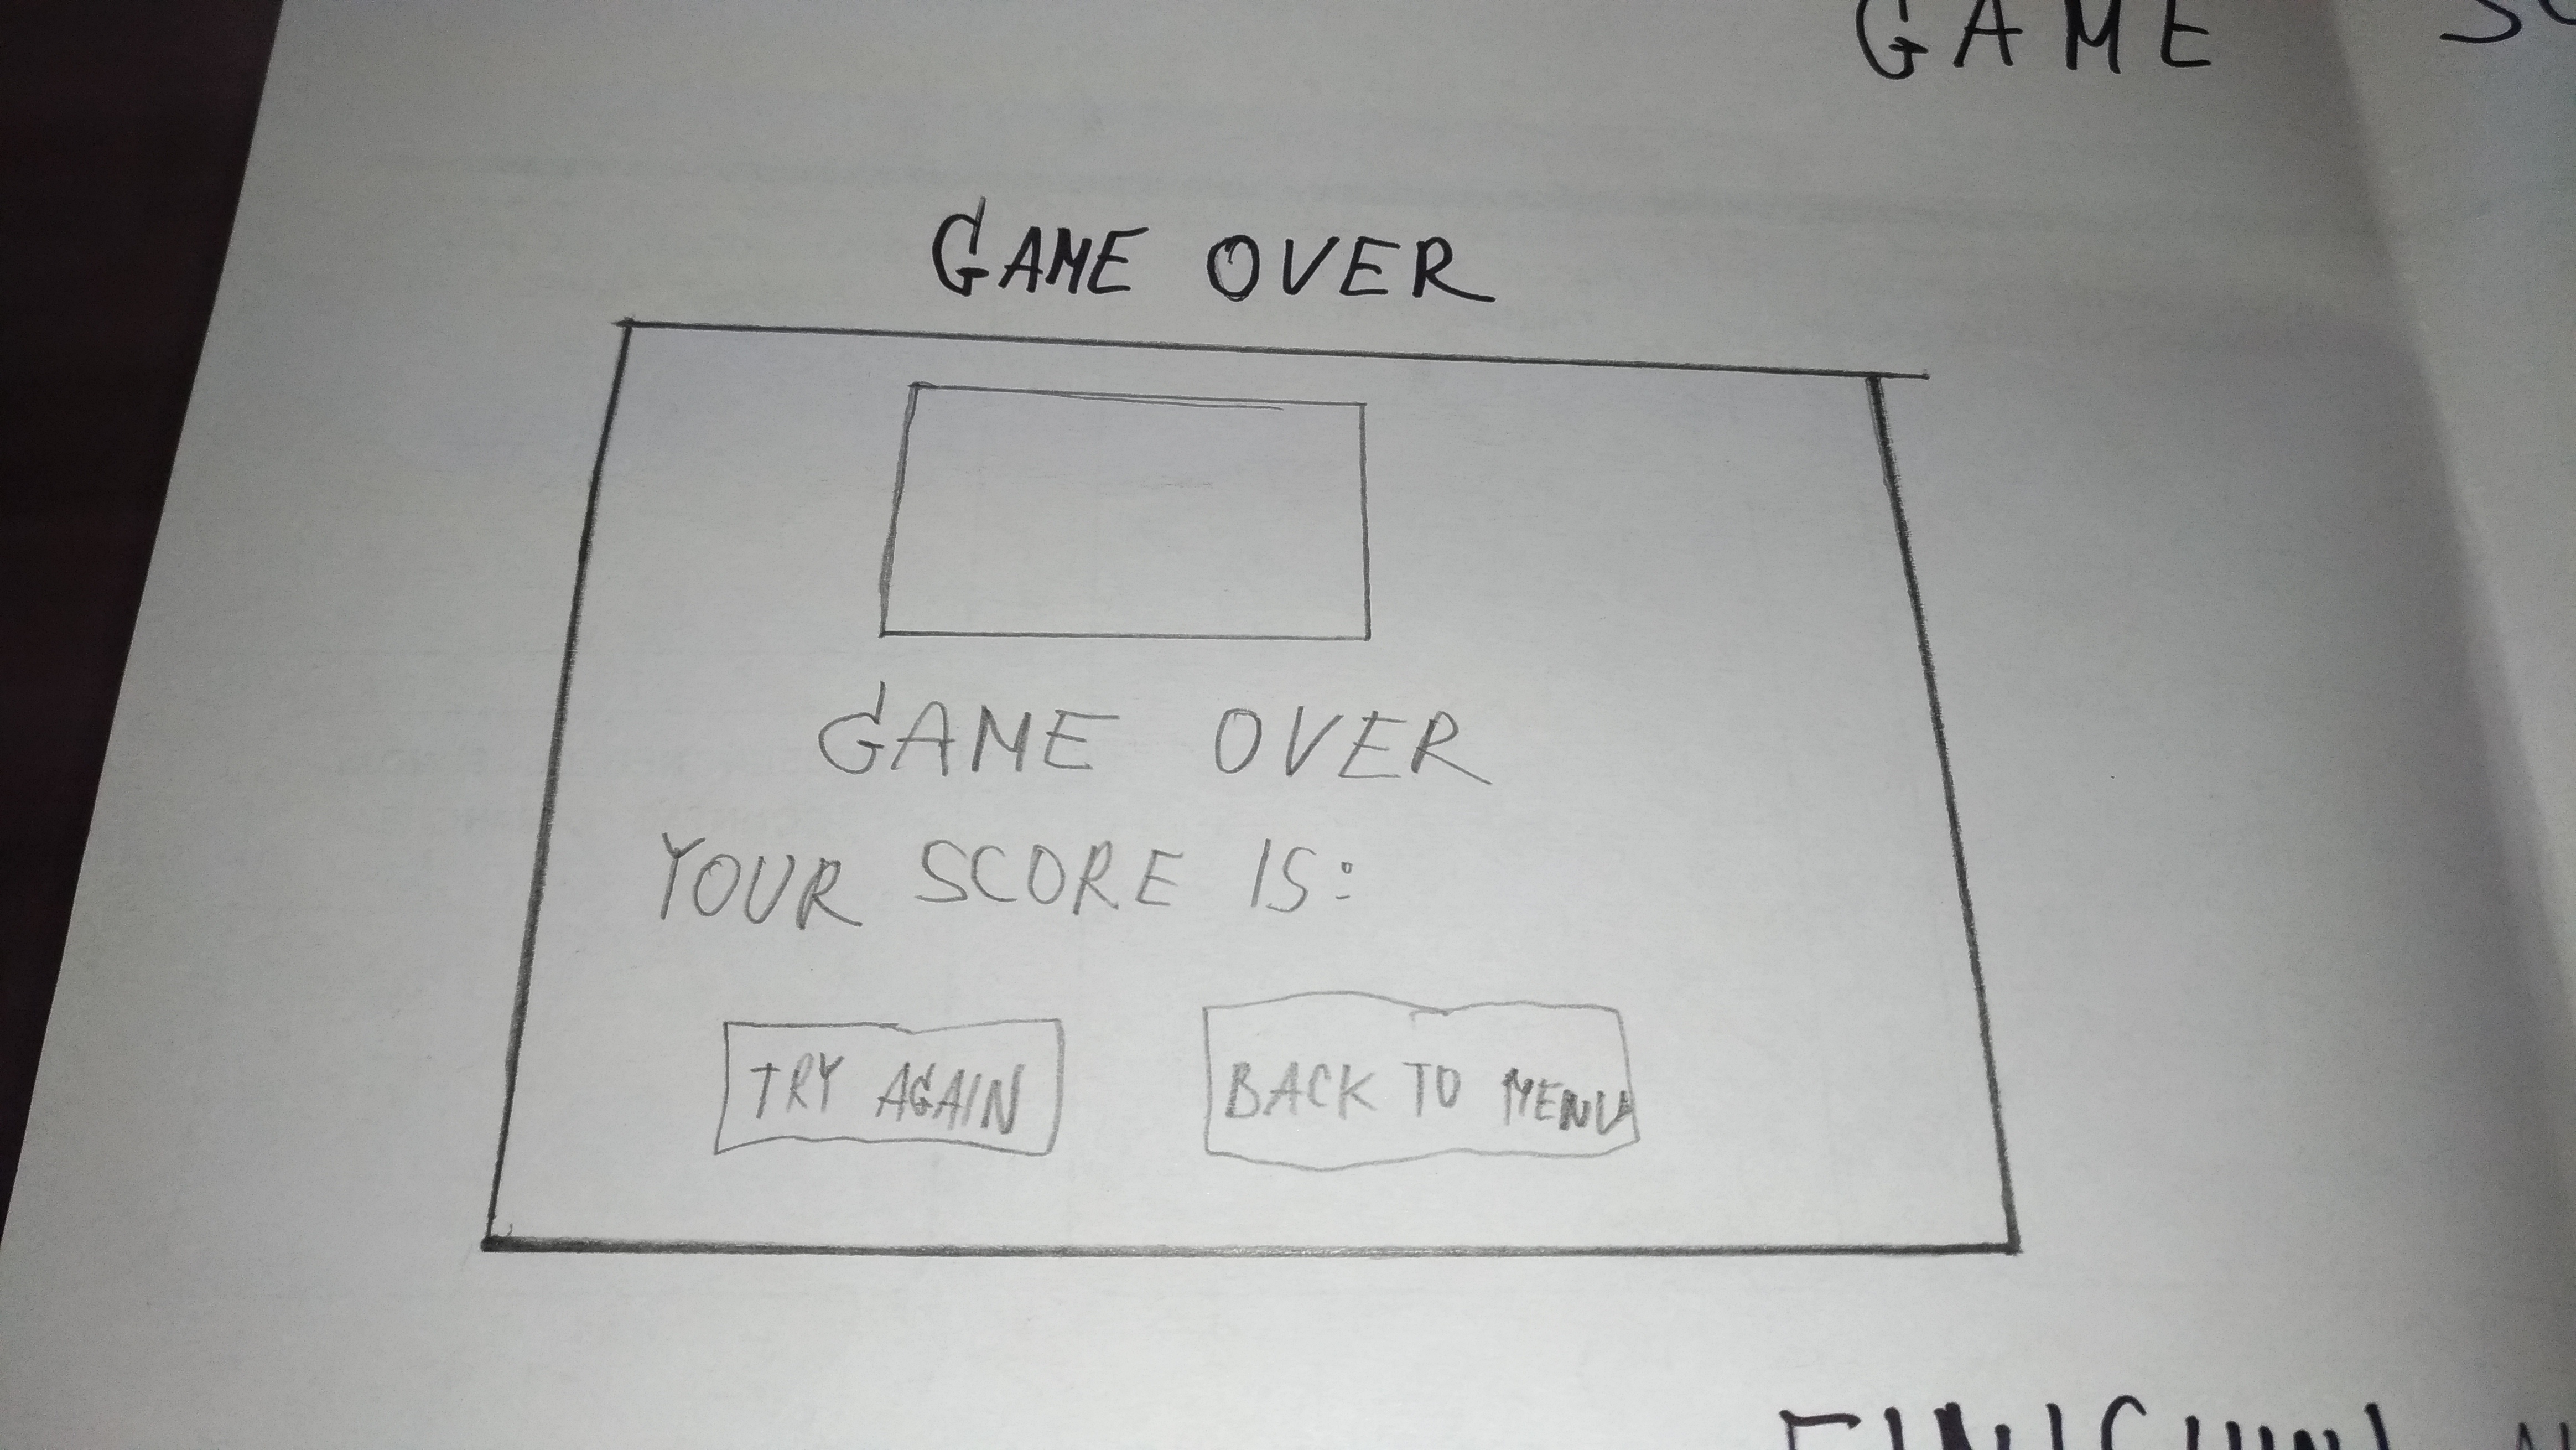 GAME
GAME OVER
GAME OVER
YOUR SCORE IS:
TRY AGAIN
BACK TO MENU